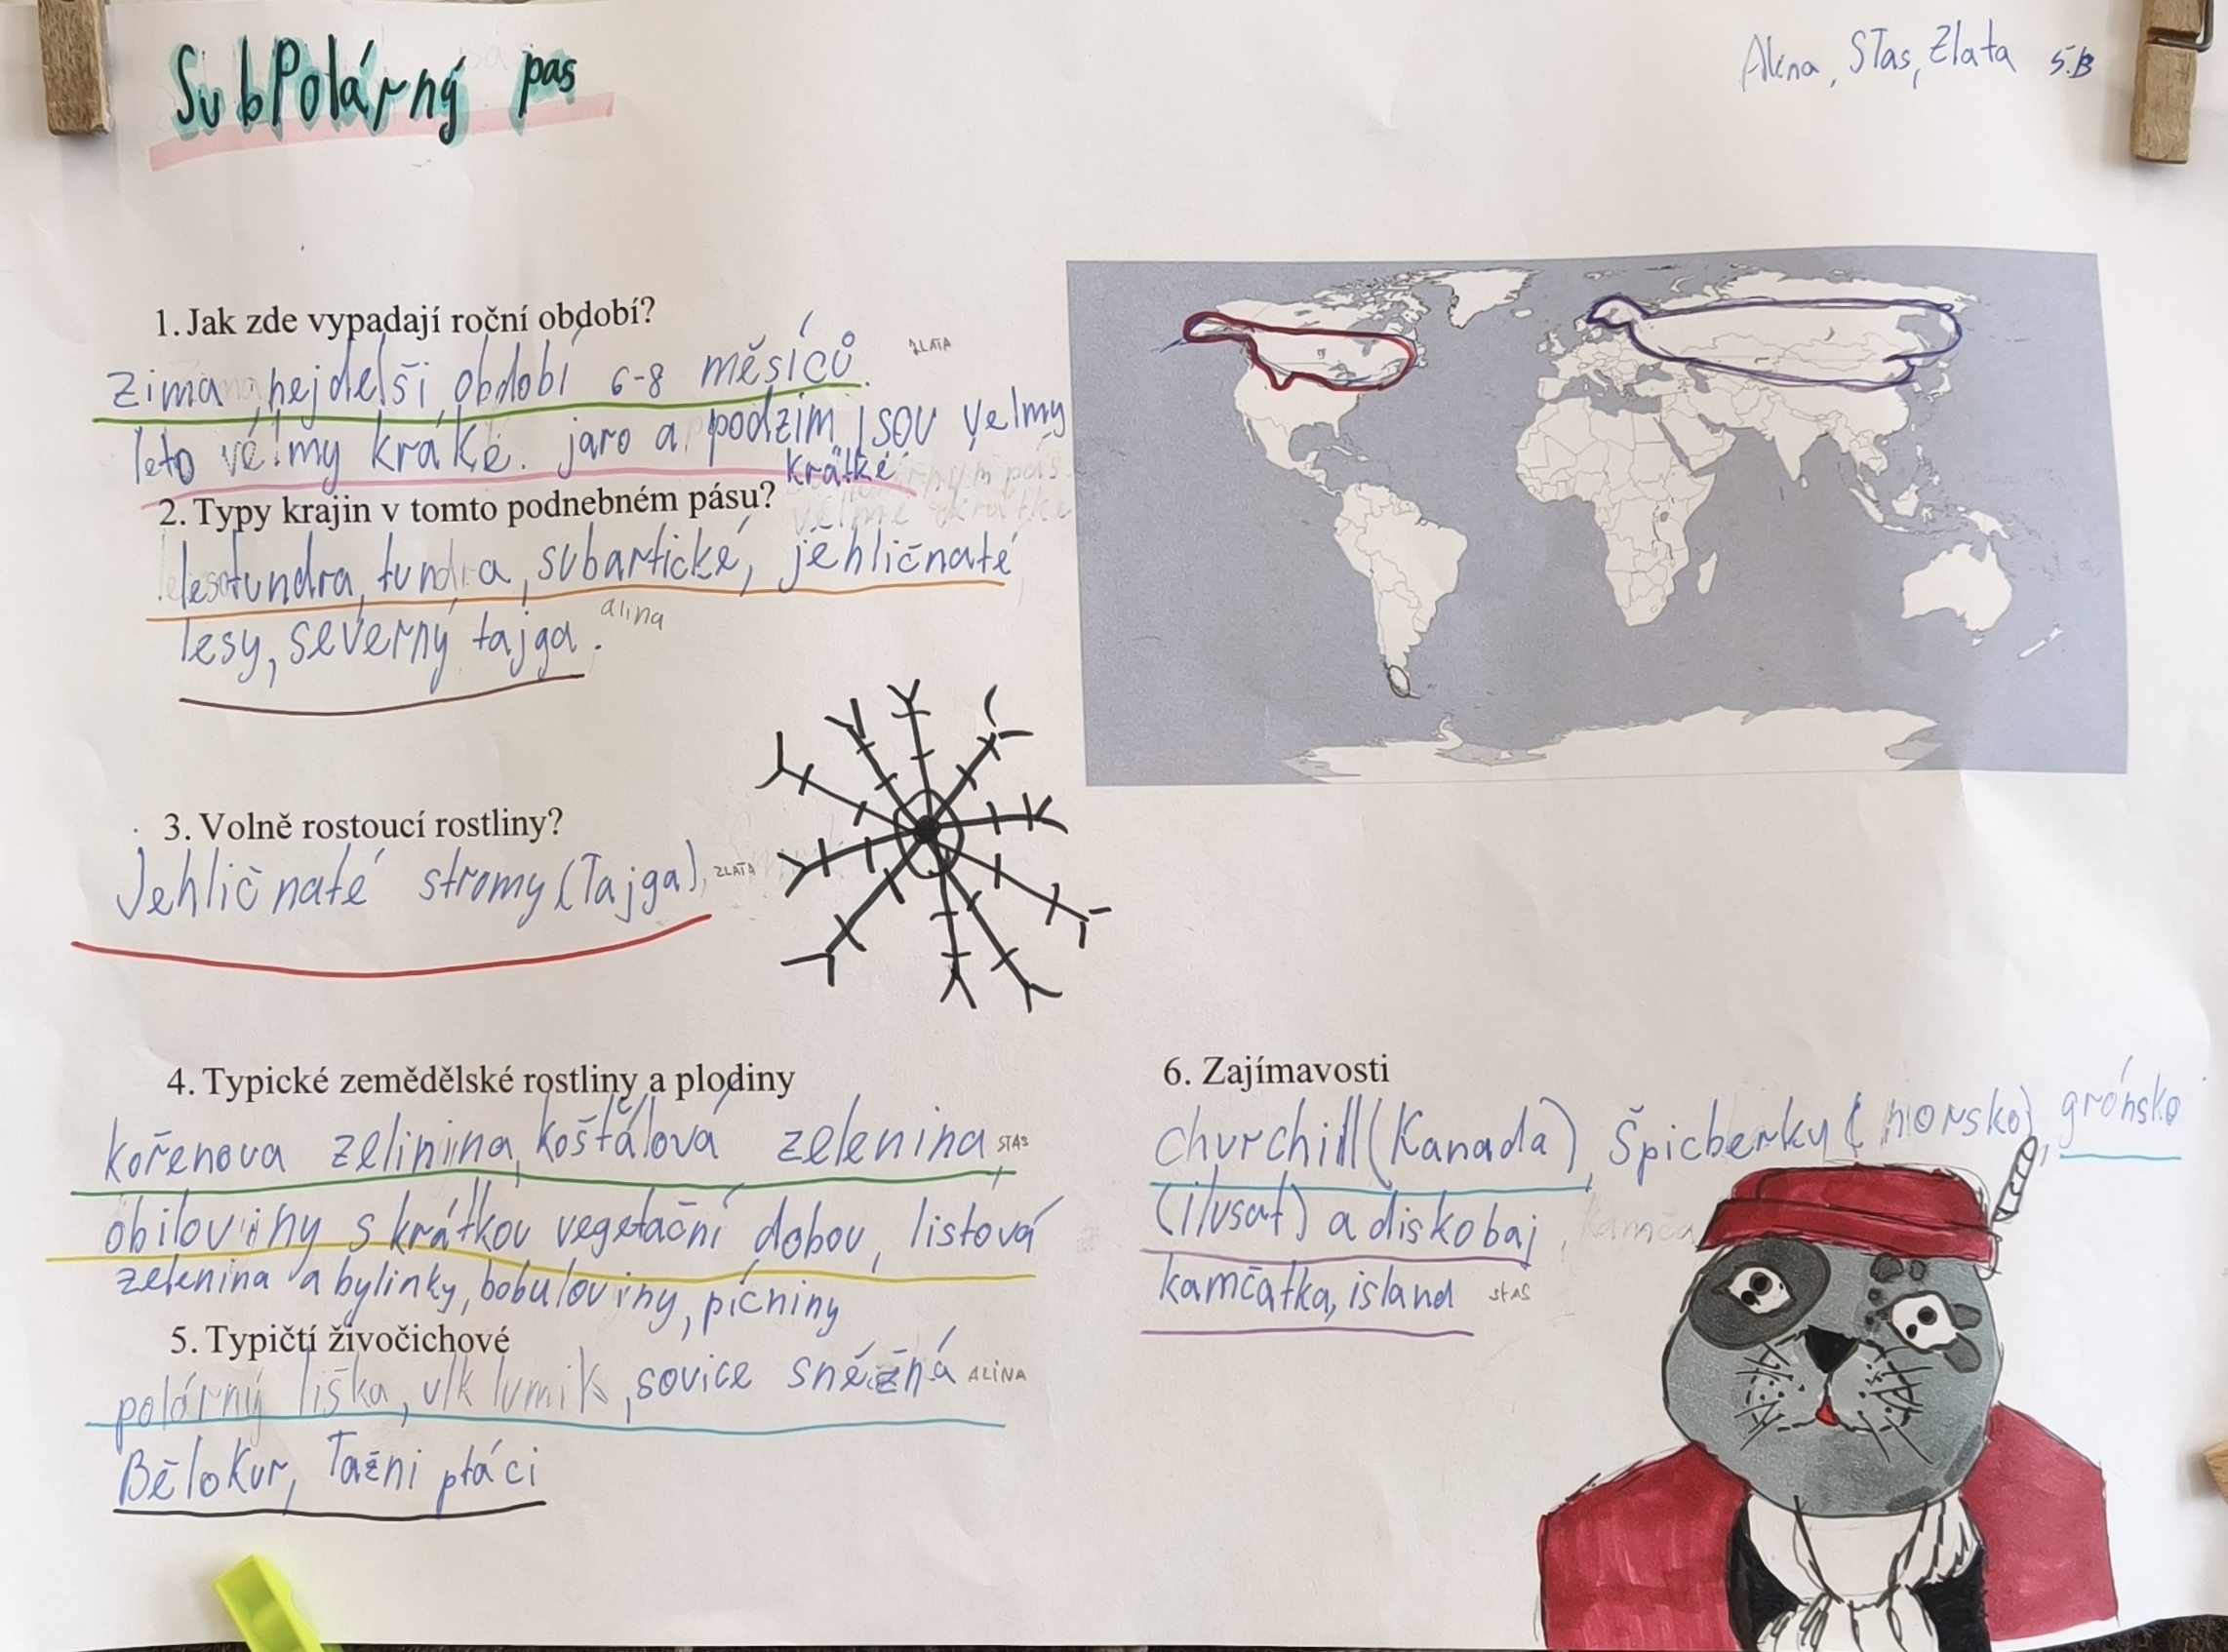 SubPolárný pas
Alina, STas, Zlata 5.B
1. Jak zde vypadají roční období?
zima nejdelší období 6-8 měsíců.
ZLATA
leto vélmy kráké. jaro a podzim jsou velmy
krátké
2. Typy krajin v tomto podnebném pásu?
lesotundra, tundra, subartické, jehličnaté
lesy, severný tajga.
alina
3. Volně rostoucí rostliny?
Jehličnaté stromy (Tajga),
ZLATA
4. Typické zemědělské rostliny a plodiny
kořenova zelinina, košťálová zelenina,
STAS
obiloviny s krátkou vegetační dobou, listová
zelenina a bylinky, bobuloviny, pícniny
5. Typičtí živočichové
polárný liška, vlk lumik, sovice sněžná
ALINA
Bělokur, Tažni ptáci
6. Zajímavosti
churchill (Kanada), Špicberky (norsko), grónsko
(ilusat) a diskobaj,
kamčatka, island
STAS